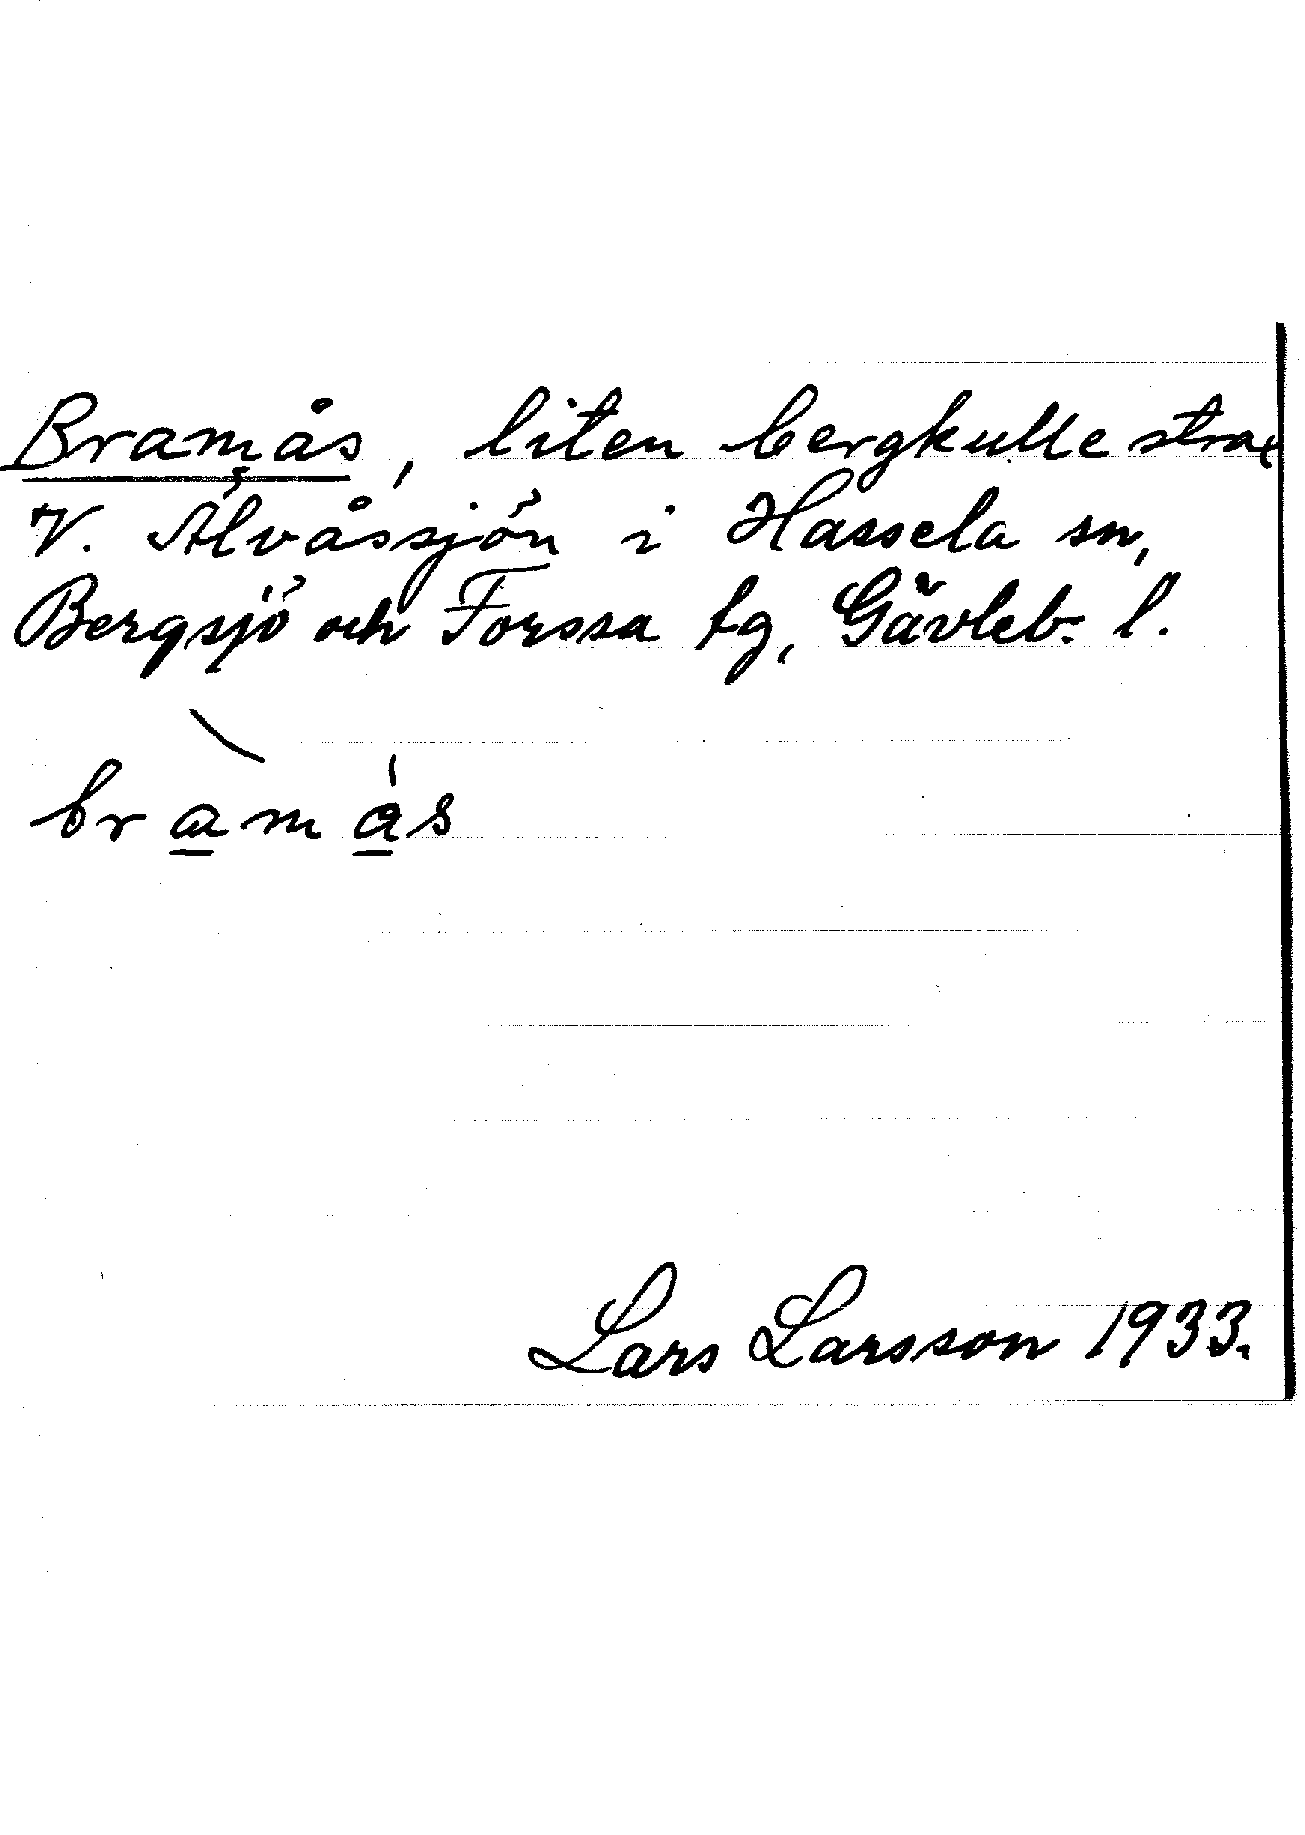 Bramås, liten bergkulle strax
V. Älvåssjön i Hassela sn,
Bergsjö och Forssa tg, Gävleb. l.
bramás
Lars Larsson 1933.